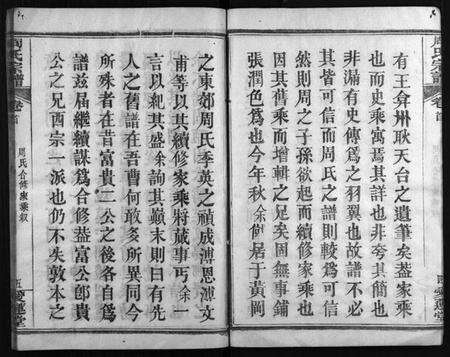 周氏宗譜
卷首
有王弇州耿天台之遺筆矣蓋家乘
也而史乘寓焉其詳也非夸其簡也
非漏有史傳爲之羽翼也故譜不必
其皆可信而周氏之譜則較爲可信
然則周之子孫欲起而續修家乘也
亦因其舊乘而增輯之足矣固無事鋪
張潤色爲也今年秋余館居于黃岡
四
愛蓮堂
之東郊周氏季英之禎成溥恩溥文
甫等以其續修家乘將蕆事丐余一
言以紀其盛余詢其顛末則曰有先
人之舊譜在吾曹何敢多所異同今
所殊者在昔富貴二公之後各自爲
譜茲屆繼續謀爲合修葢富公卽貴
公之兄酉宗一派也仍不失敦本之
周氏宗譜
卷首
周氏合修家乘叙
五
愛蓮堂